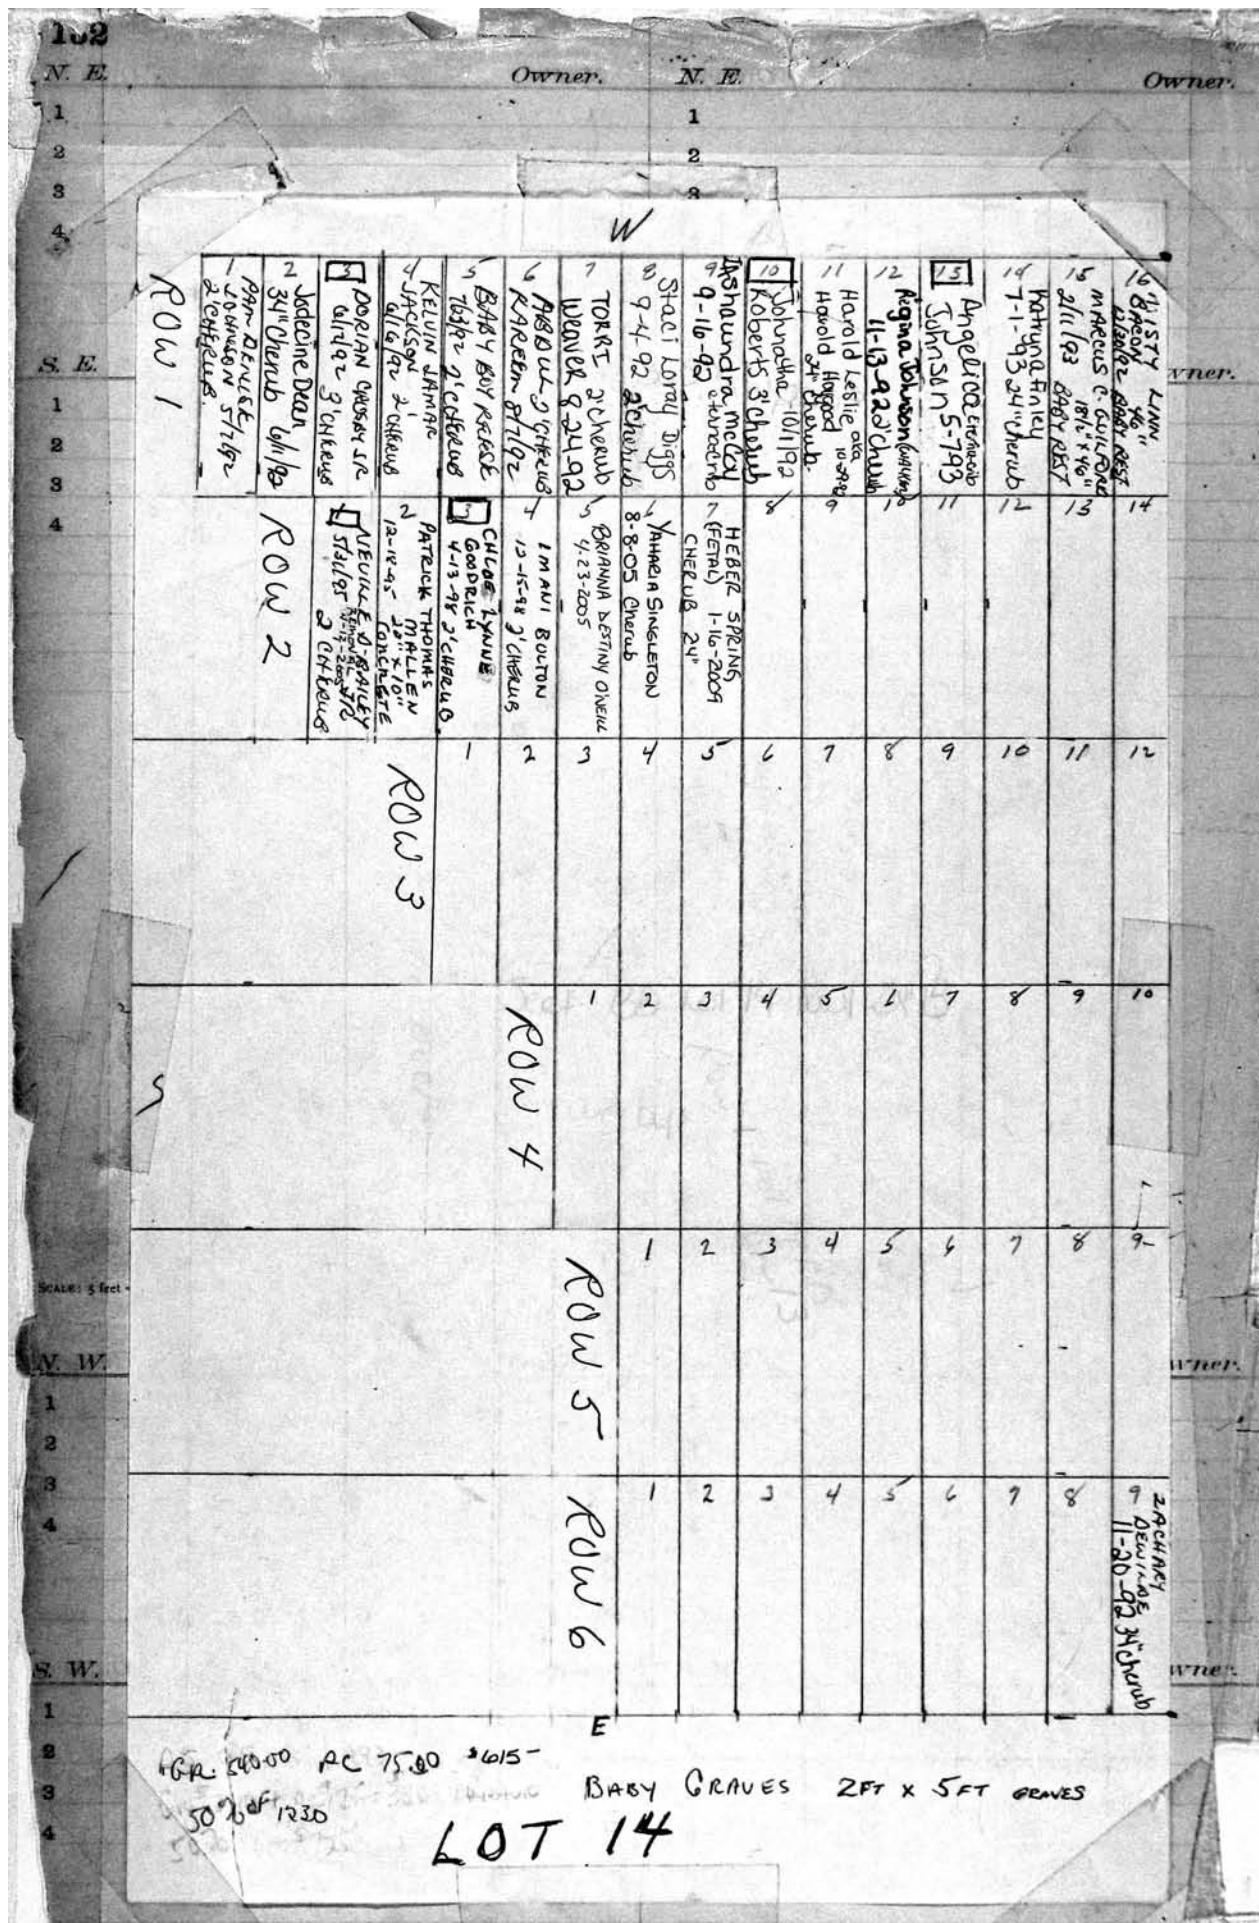 N. E.
Owner.
N. E.
Owner.
1
2
3
4
1
2
3
W
ROW 1
1 PAM DENISE
JOHNSON 5/7/92
2' CHERUB.
2 Jodecine Dean
34" Cherub 6/1/92
3 DORIAN CROSBY SR
6/12/92 3' CHERUB
4 KELVIN JAMAR
JACKSON
6/16/92 2' CHERUB
5 BABY BOY REESE
7/63/92 2' CHERUB
6 ABDUL 2' CHERUB
KAREEM 8/7/92
7 TORRI 2' Cherub
Weaver 8-24-92
8 Staci Loray Diggs
9-4-92 2' Cherub
9 Ashaundra McCoy
9-16-92
10 Johnatha 10/1/92
Roberts 3' Cherub
11 Harold Leslie aka
Harold Haygood 10-29-92
24" Cherub.
12 Regina Johnson
11-13-92 2' Cherub
13 Angelica
Johnson 5-7-93
14 Katryna Finley
7-1-93 24" Cherub
15 MARCUS C. GUILFORD
2/11/93 18½" x 40"
BABY REST
16 MISTY LINN
BACON 40"
12/30/92 BABY REST
ROW 2
1 NEVILLE D. BAILEY JR
5/31/95 REMOVAL
2' CHERUB
2 PATRICK THOMAS
MALLEN
12-18-95 20" x 10"
CONCRETE
3 CHLOE LYNNE
GOODRICH
4-13-98 2' CHERUB
4 IMANI BOLTON
12-15-98 2' CHERUB
5 BRIANNA DESTINY O'NEILL
4-23-2005
6 YAHARIA SINGLETON
8-8-05 Cherub
7 HEBER SPRING
(FETAL) 1-16-2009
CHERUB 24"
8
9
10
11
12
13
14
ROW 3
1 2 3 4 5 6 7 8 9 10 11 12
ROW 4
1 2 3 4 5 6 7 8 9 10
ROW 5
1 2 3 4 5 6 7 8 9
ROW 6
1 2 3 4 5 6 7 8
9 ZACHARY
DEWILDE
11-20-92 34" Cherub
S. E.
1
2
3
4
wner.
S
SCALE: 5 feet
N. W.
1
2
3
4
wner.
S. W.
1
2
3
4
wner.
E
GR. 540.00 PC 75.00 $615-
50% of 1230
BABY GRAVES 2FT x 5FT GRAVES
LOT 14